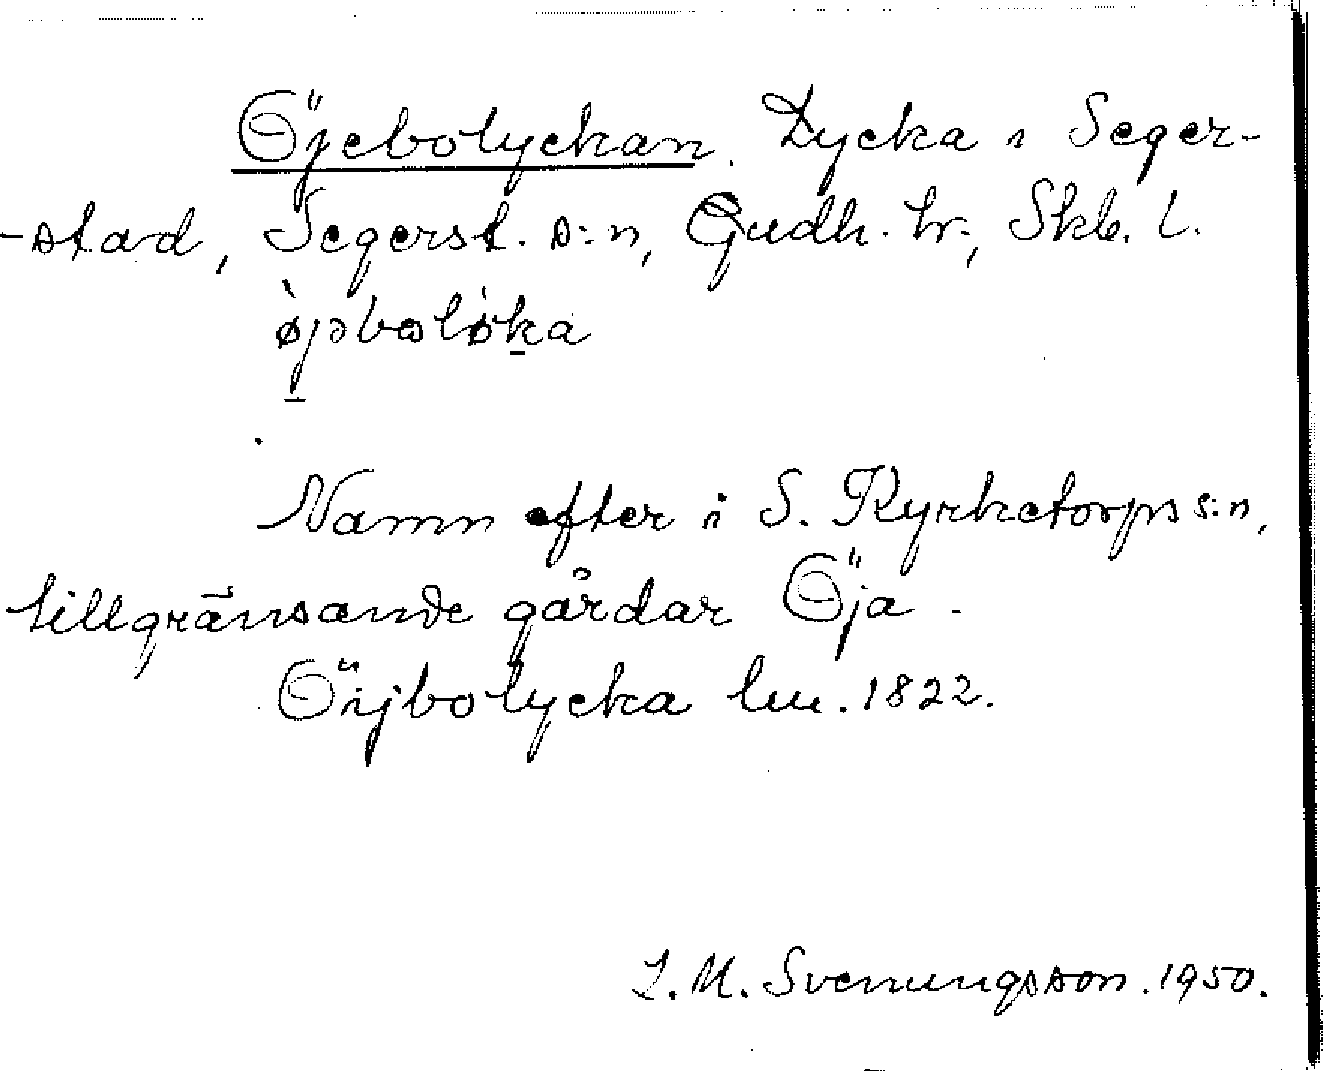 Öjebolyckan. Lycka i Seger-
-stad, Segerst. s:n, Gudh. hr., Skb. l.
øjəboløka
Namn efter i S. Kyrketorps s:n,
tillgränsande gårdar Öja.
Öijbolycka lm. 1822.
L. M. Svenungsson. 1950.